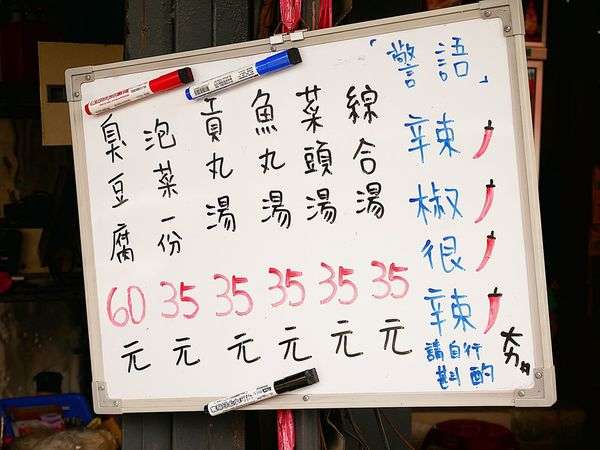 臭豆腐60元
泡菜一份35元
貢丸湯35元
魚丸湯35元
菜頭湯35元
綜合湯35元
「警語」
辣椒很辣
請自行
斟酌